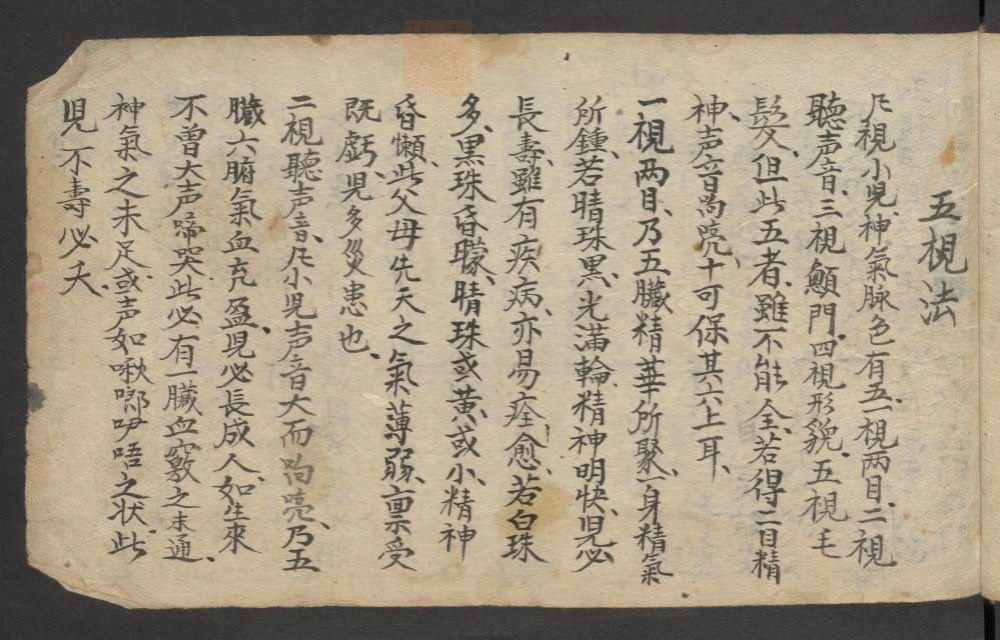 五視法
凡視小児神氣脉色有五、一視两目、二視
聽声音、三視顖門、四視形貌、五視毛
髮、但此五者、雖不能全、若得二目精
神、声音响喨、十可保其六上耳、
一視两目、乃五臟精華所聚、一身精氣
所鍾、若睛珠黑、光満輪、精神明快、児必
長壽、雖有疾病、亦易痊愈、若白珠
多、黒珠昏朦、睛珠或黄、或小、精神
昏懶、此父母先天之氣薄弱、禀受
既虧、児多災患也、
二視聽声音、凡小児声音大而响喨、乃五
臟六腑氣血充盈、児必長成人、如生來
不曾大声啼哭、此必有一臟血竅之未通、
神氣之未足、或声如啾唧咿唔之状、此
児不壽必夭、